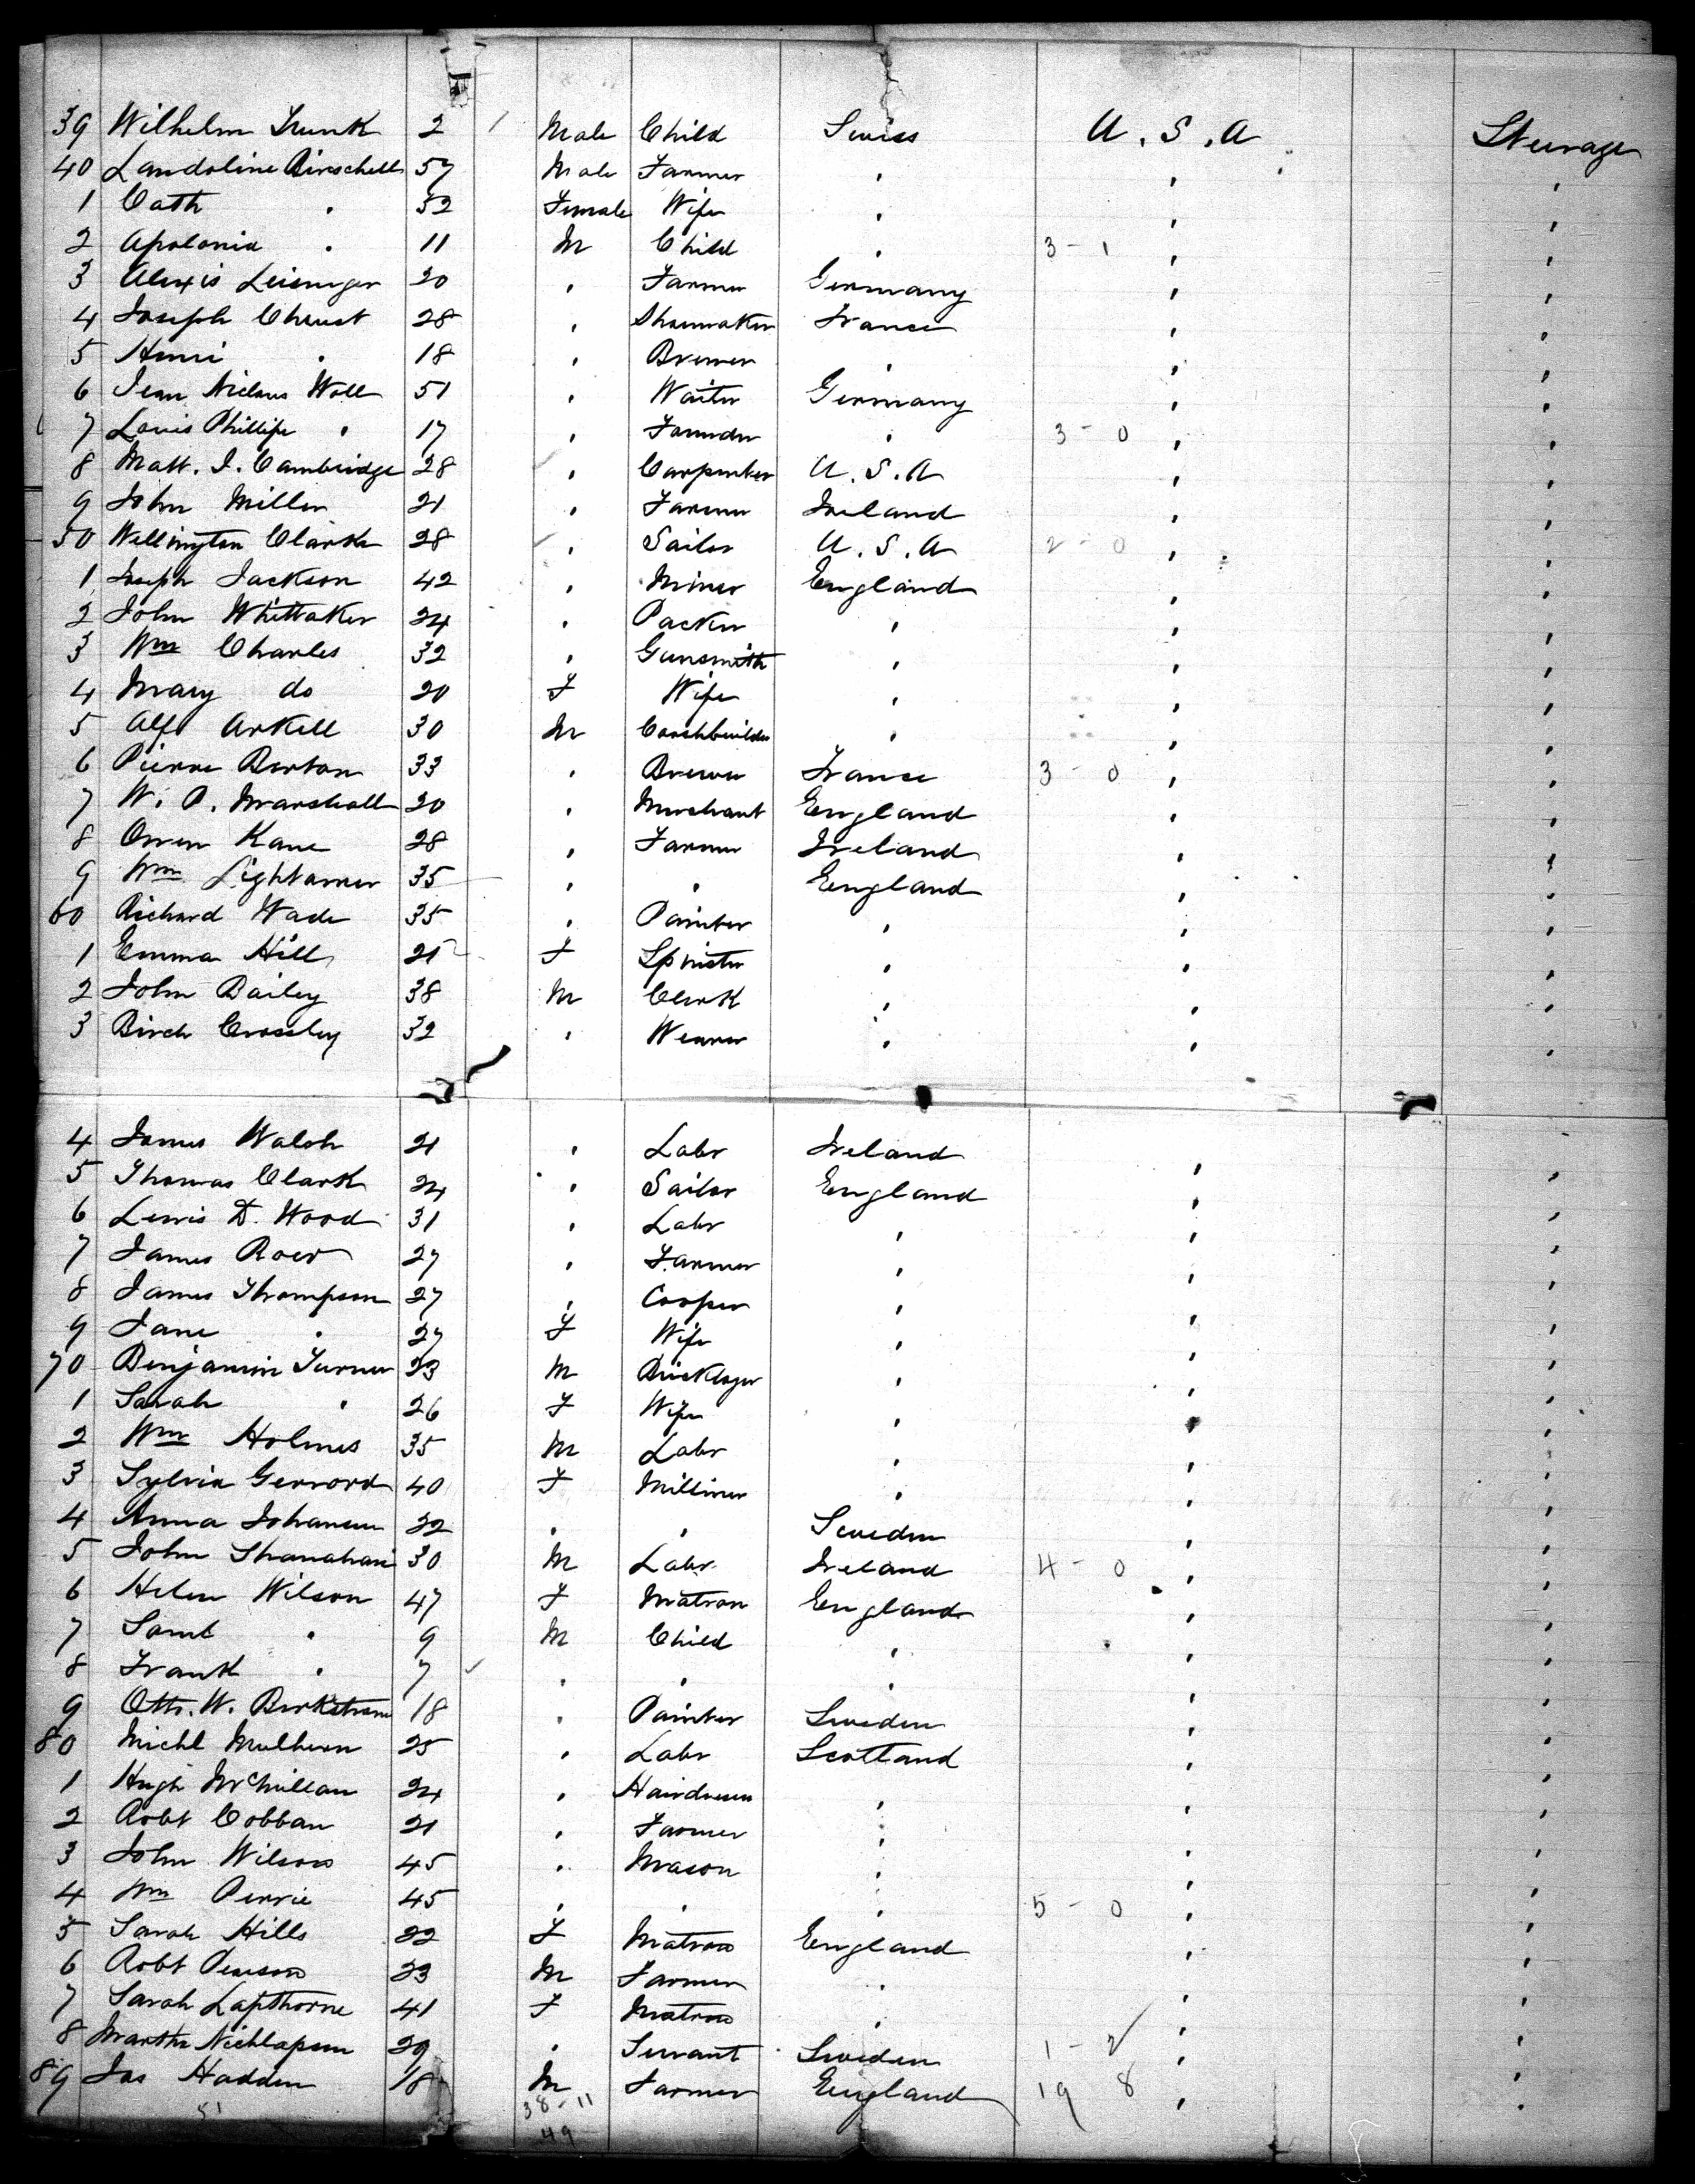 39 Wilhelm Trunk 2 Male Child Swiss U.S.A Steerage
40 Landoline 57 Male Farmer , , ,
1 Cath . 32 Female Wife , , ,
2 Apolonia . 11 M Child , 3-1 , ,
3 Alexis Leisinger 20 , Farmer Germany , ,
4 Joseph 28 , Shoemaker France , ,
5 Henri . 18 , Brewer , , ,
6 Jean Niclaus Woll 51 , Waiter Germany , ,
7 Louis Phillipe . 17 , , 3-0 , ,
8 Matt. J. Cambridge 28 , Carpenter U.S.A , ,
9 John Miller 21 , Farmer Ireland , ,
50 Wellington Clark 28 , Sailor U.S.A 2-0 , ,
1 Joseph Jackson 42 , Miner England , ,
2 John Whittaker 24 , Packer , , ,
3 Wm Charles 32 , Gunsmith , , ,
4 Mary do 20 F Wife , , ,
5 Alf Arkell 30 M Coachbuilder , , ,
6 Pierre Berton 33 , Brewer France 3-0 , ,
7 W. P. Marshall 20 , Merchant England , ,
8 Owen Kane 28 , Farmer Ireland , ,
9 Wm Lightowner 35 , , England , ,
60 Richard Wade 35 , Painter , , ,
1 Emma Hill 21 F Spinster , , ,
2 John Bailey 38 M Clerk , , ,
3 Birch Crossley 32 , Weaver , , ,
4 James Walsh 21 , Labr Ireland , ,
5 Thomas Clark 24 , Sailor England , ,
6 Lewis D. Wood 31 , Labr , , ,
7 James 27 , Farmer , , ,
8 James Thompson 27 , Cooper , , ,
9 Jane . 27 F Wife , , ,
70 Benjamin Turner 23 M Bricklayer , , ,
1 Sarah . 26 F Wife , , ,
2 Wm Holmes 35 M Labr , , ,
3 Sylvia Gerrord 40 F Milliner , , ,
4 Anna Johansen 22 , , Sweden , ,
5 John Shanahan 30 M Labr Ireland 4-0 , ,
6 Helen Wilson 47 F Matron England , ,
7 Saml . 9 M Child , , ,
8 Frank . 7 , , , , ,
9 Otto. W. Berkstrom 18 , Painter Sweden , ,
80 Michl Mulhern 25 , Labr Scotland , ,
1 Hugh McMillan 24 , Hairdresser , , ,
2 Robt Cobban 21 , Farmer , , ,
3 John Wilson 45 , Mason , , ,
4 Wm Perrie 45 , , , 5-0 , ,
5 Sarah Hills 22 F Matron England , ,
6 Robt Pearson 23 M Farmer , , ,
7 Sarah Lapthorne 41 F Matron , , ,
8 Martha 29 , Servant Sweden 1-2 , ,
89 Jas Hadden 18 M Farmer England 19 8 , ,
51 38-11
49